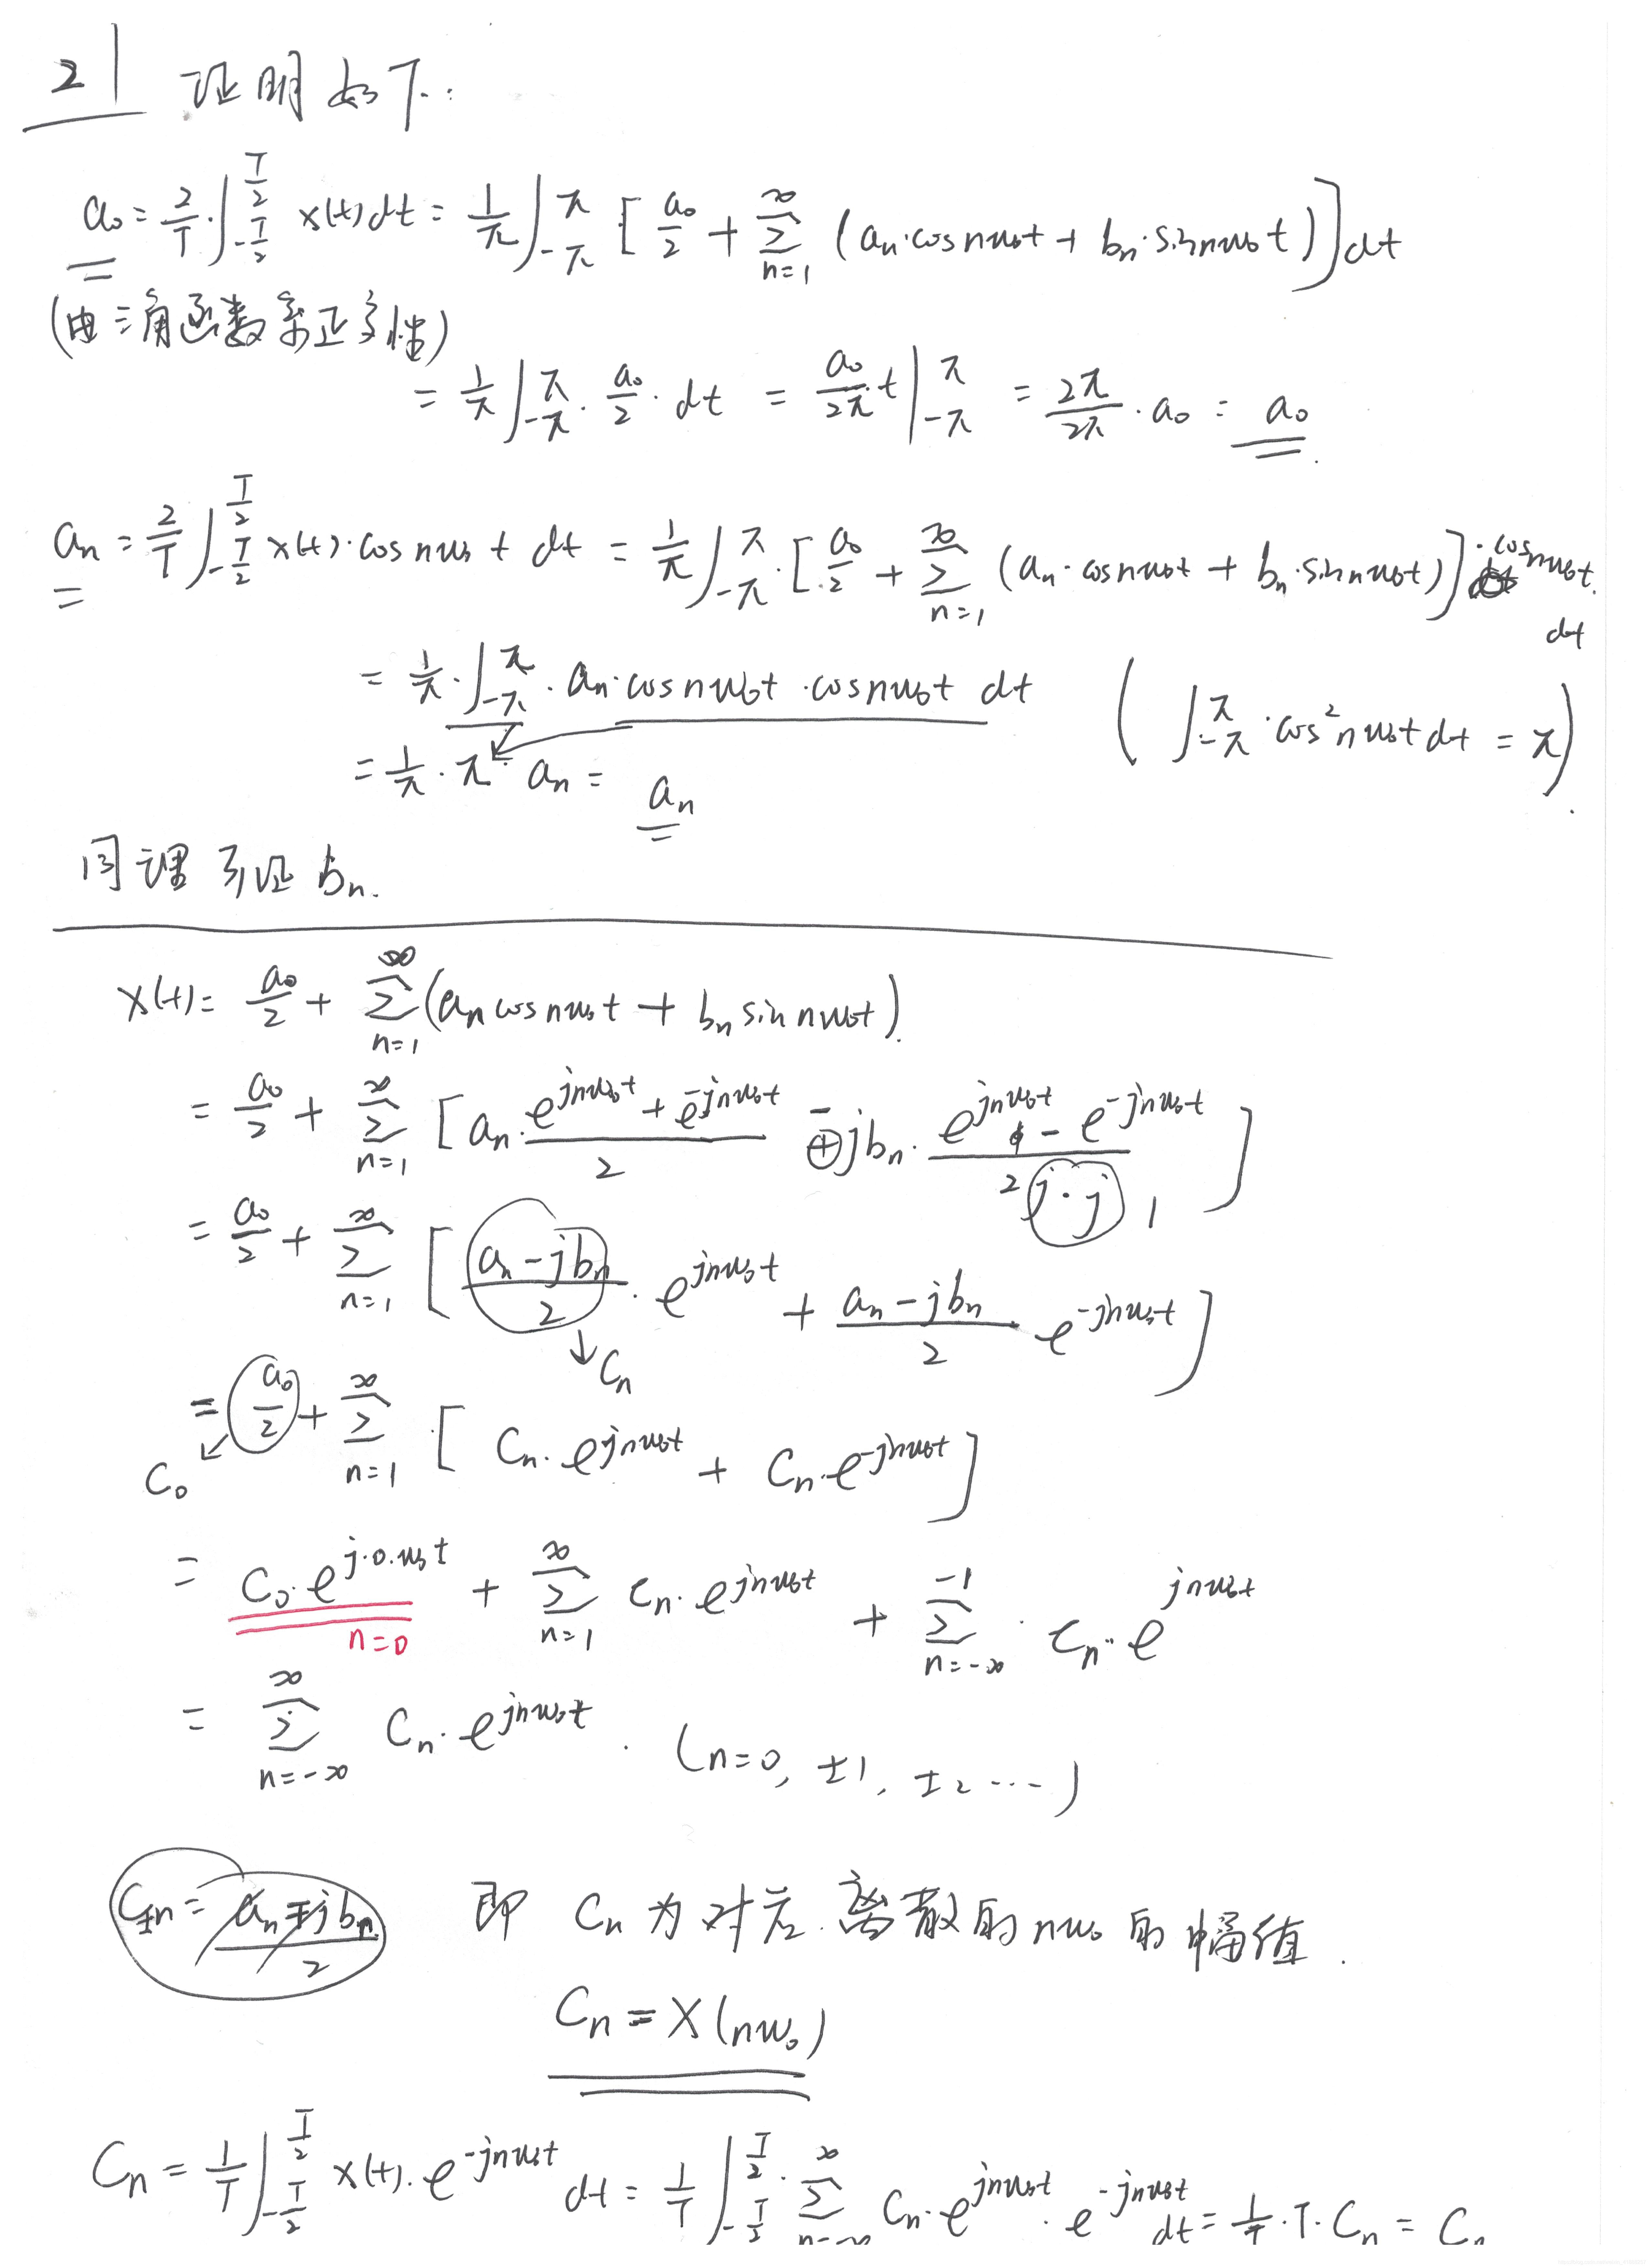 21 证明如下:
a₀ = 2/T · ∫_{-T/2}^{T/2} x(t)dt = 1/π ∫_{-π}^{π} [a₀/2 + Σ_{n=1}^{∞} (aₙ·cosnω₀t + bₙ·sinnω₀t)]dt
(由三角函数系正交性)
= 1/π ∫_{-π}^{π} · a₀/2 · dt = a₀/2π t |_{-π}^{π} = 2π/2π · a₀ = a₀
aₙ = 2/T ∫_{-T/2}^{T/2} x(t)·cosnω₀t dt = 1/π ∫_{-π}^{π} · [a₀/2 + Σ_{n=1}^{∞} (aₙ·cosnω₀t + bₙ·sinnω₀t)]·cosnω₀t. dt
= 1/π · ∫_{-π}^{π} · aₙ·cosnω₀t·cosnω₀t dt ( ∫_{-π}^{π} ·cos²nω₀t dt = π)
= 1/π · π aₙ = aₙ
同理可证 bₙ.
x(t) = a₀/2 + Σ_{n=1}^{∞} (aₙcosnω₀t + bₙsinnω₀t).
= a₀/2 + Σ_{n=1}^{∞} [aₙ· (e^{jnω₀t} + e^{-jnω₀t})/2 - + jbₙ· (e^{jnω₀t} - e^{-jnω₀t})/(2 j·j) 1]
= a₀/2 + Σ_{n=1}^{∞} [(aₙ - jbₙ)/2 · e^{jnω₀t} + (aₙ - jbₙ)/2 e^{-jnω₀t}]
↓ Cₙ
= a₀/2 + Σ_{n=1}^{∞} [Cₙ·e^{jnω₀t} + Cₙ·e^{-jnω₀t}]
C₀
= C₀·e^{j·0·ω₀t} + Σ_{n=1}^{∞} Cₙ·e^{jnω₀t} + Σ_{n=-∞}^{-1} · Cₙ·e^{jnω₀t}
n=0
= Σ_{n=-∞}^{∞} Cₙ·e^{jnω₀t}. (n=0, ±1, ±2 ···)
C±ₙ = (aₙ ∓ jbₙ)/2 即 Cₙ 为对应离散的nω₀的幅值.
Cₙ = X(nω₀)
Cₙ = 1/T ∫_{-T/2}^{T/2} x(t)·e^{-jnω₀t} dt = 1/T ∫_{-T/2}^{T/2} · Σ_{n=-∞}^{∞} Cₙ·e^{jnω₀t}·e^{-jnω₀t} dt = 1/T·T·Cₙ = Cₙ